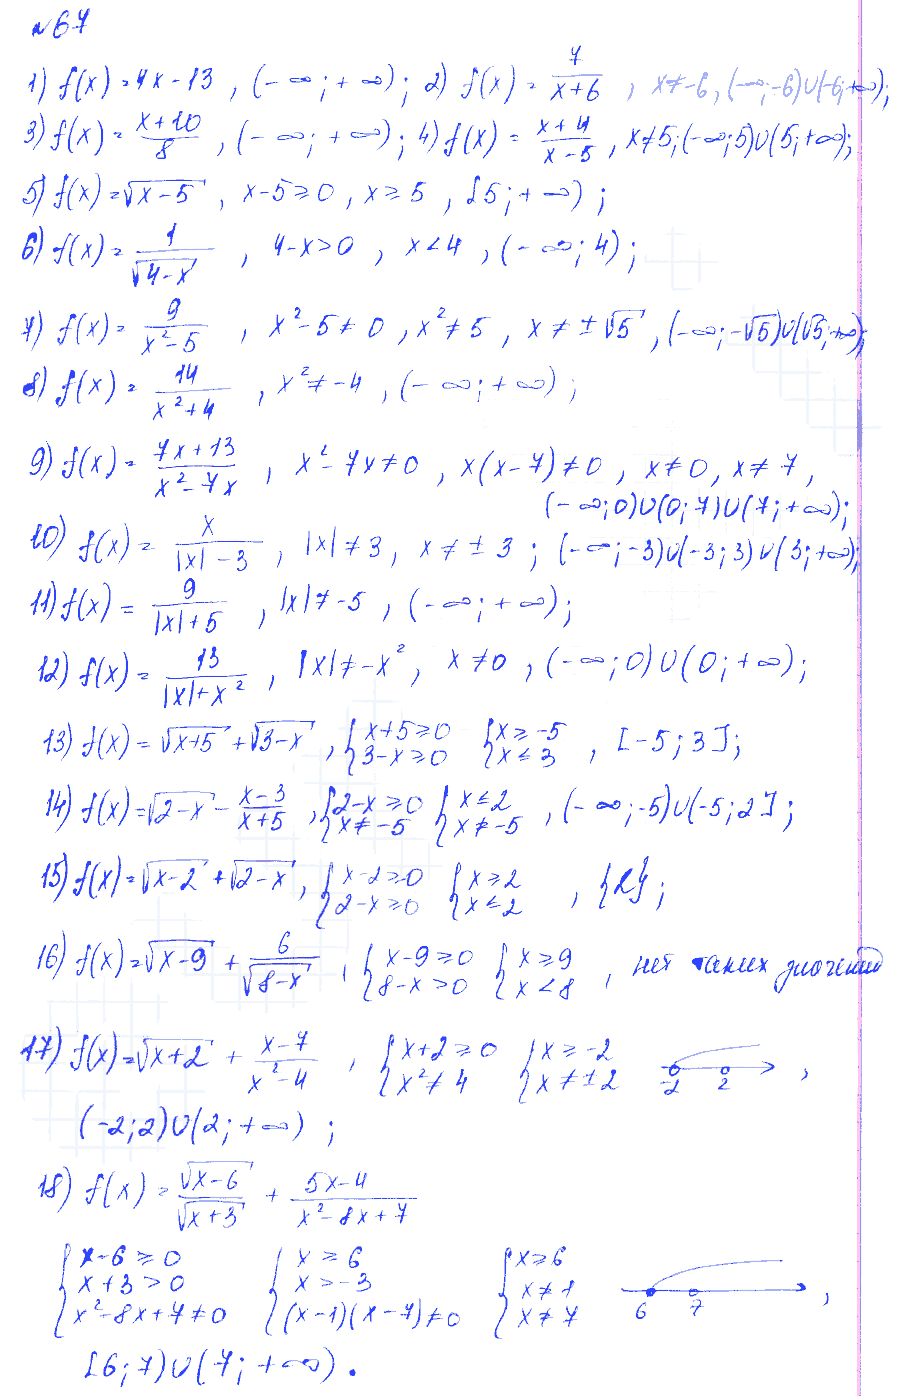 №67
1) f(x) = 4x-13, (-∞; +∞); 2) f(x) = 7/(x+6), x≠-6, (-∞;-6)∪(-6;+∞);
3) f(x) = (x+10)/8, (-∞; +∞); 4) f(x) = (x+4)/(x-5), x≠5; (-∞;5)∪(5;+∞);
5) f(x) = √(x-5), x-5≥0, x≥5, [5;+∞);
6) f(x) = 1/√(4-x), 4-x>0, x<4, (-∞; 4);
7) f(x) = 9/(x²-5), x²-5≠0, x²≠5, x≠±√5, (-∞;-√5)∪(√5;+∞);
8) f(x) = 14/(x²+4), x²≠-4, (-∞;+∞);
9) f(x) = (7x+13)/(x²-7x), x²-7x≠0, x(x-7)≠0, x≠0, x≠7,
(-∞;0)∪(0;7)∪(7;+∞);
10) f(x) = x/(|x|-3), |x|≠3, x≠±3; (-∞;-3)∪(-3;3)∪(3;+∞);
11) f(x) = 9/(|x|+5), |x|≠-5, (-∞;+∞);
12) f(x) = 13/(|x|+x²), |x|≠-x², x≠0, (-∞;0)∪(0;+∞);
13) f(x) = √(x+5)+√(3-x), {x+5≥0 {x≥-5
3-x≥0 x≤3, [-5;3];
14) f(x) = √(2-x) - (x-3)/(x+5), {2-x≥0 {x≤2
x≠-5 x≠-5, (-∞;-5)∪(-5;2];
15) f(x) = √(x-2)+√(2-x), {x-2≥0 {x≥2
2-x≥0 x≤2, {2};
16) f(x) = √(x-9) + 6/√(8-x), {x-9≥0 {x≥9
8-x>0 x<8, нет таких значений
17) f(x) = √(x+2) + (x-7)/(x²-4), {x+2≥0 {x≥-2
x²≠4 x≠±2 -2 2,
(-2;2)∪(2;+∞);
18) f(x) = √(x-6)/√(x+3) + (5x-4)/(x²-8x+7)
{x-6≥0 {x≥6 {x≥6
x+3>0 x>-3 x≠1
x²-8x+7≠0 (x-1)(x-7)≠0 x≠7 6 7,
[6;7)∪(7;+∞).